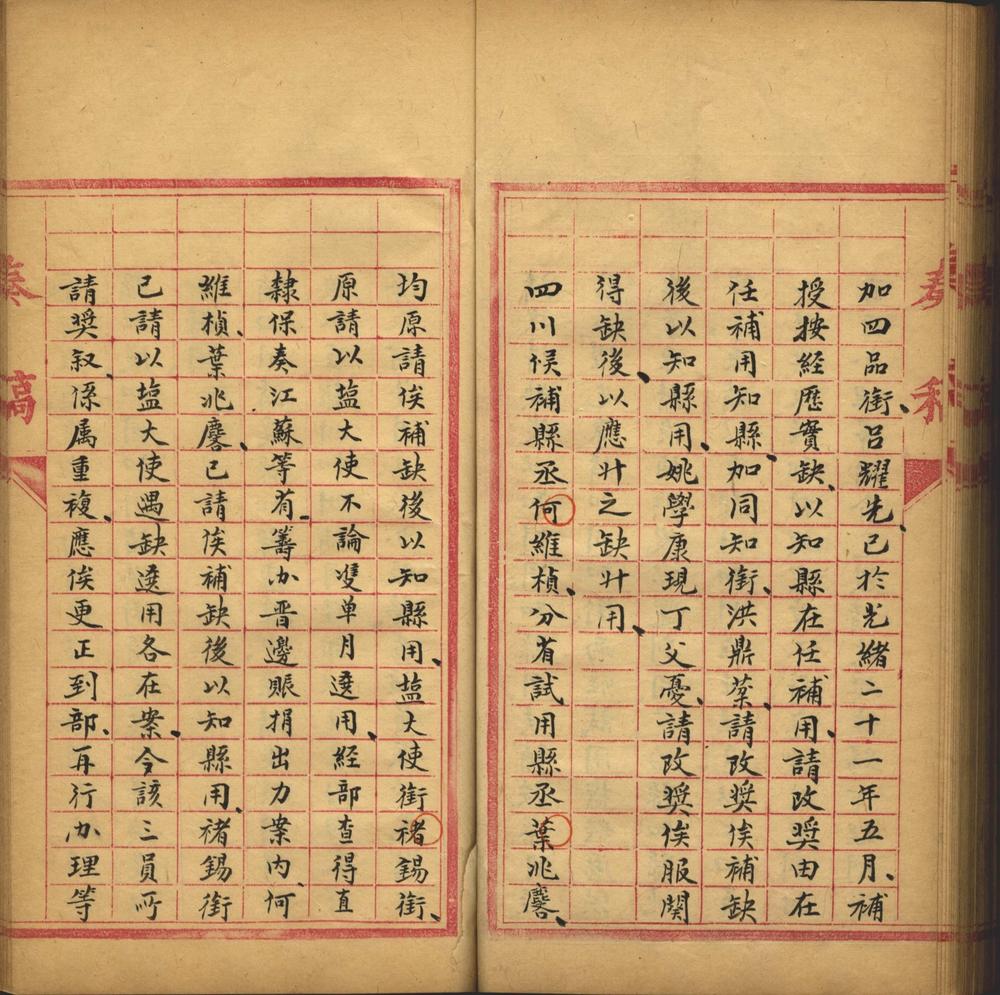 奏稿
加四品銜、呂耀先、已於光緒二十一年五月、補
授按經歷實缺、以知縣在任補用、請改奬由在
任補用知縣、加同知銜、洪鼎棻、請改奬俟補缺
後以知縣用、姚學康現丁父憂、請改奬俟服闋
得缺後、以應升之缺升用、
四川候補縣丞何維楨、分省試用縣丞葉兆麐、
均原請俟補缺後以知縣用、塩大使銜禇錫銜、
原請以塩大使不論雙单月選用、經部查得直
隸保奏江蘇等省籌办晋邊賬捐出力案内、何
維楨、葉兆麐、已請俟補缺後以知縣用、禇錫銜
已請以塩大使遇缺選用各在案、今該三員所
請奬叙、係属重複、應俟更正到部、再行办理等
奏稿